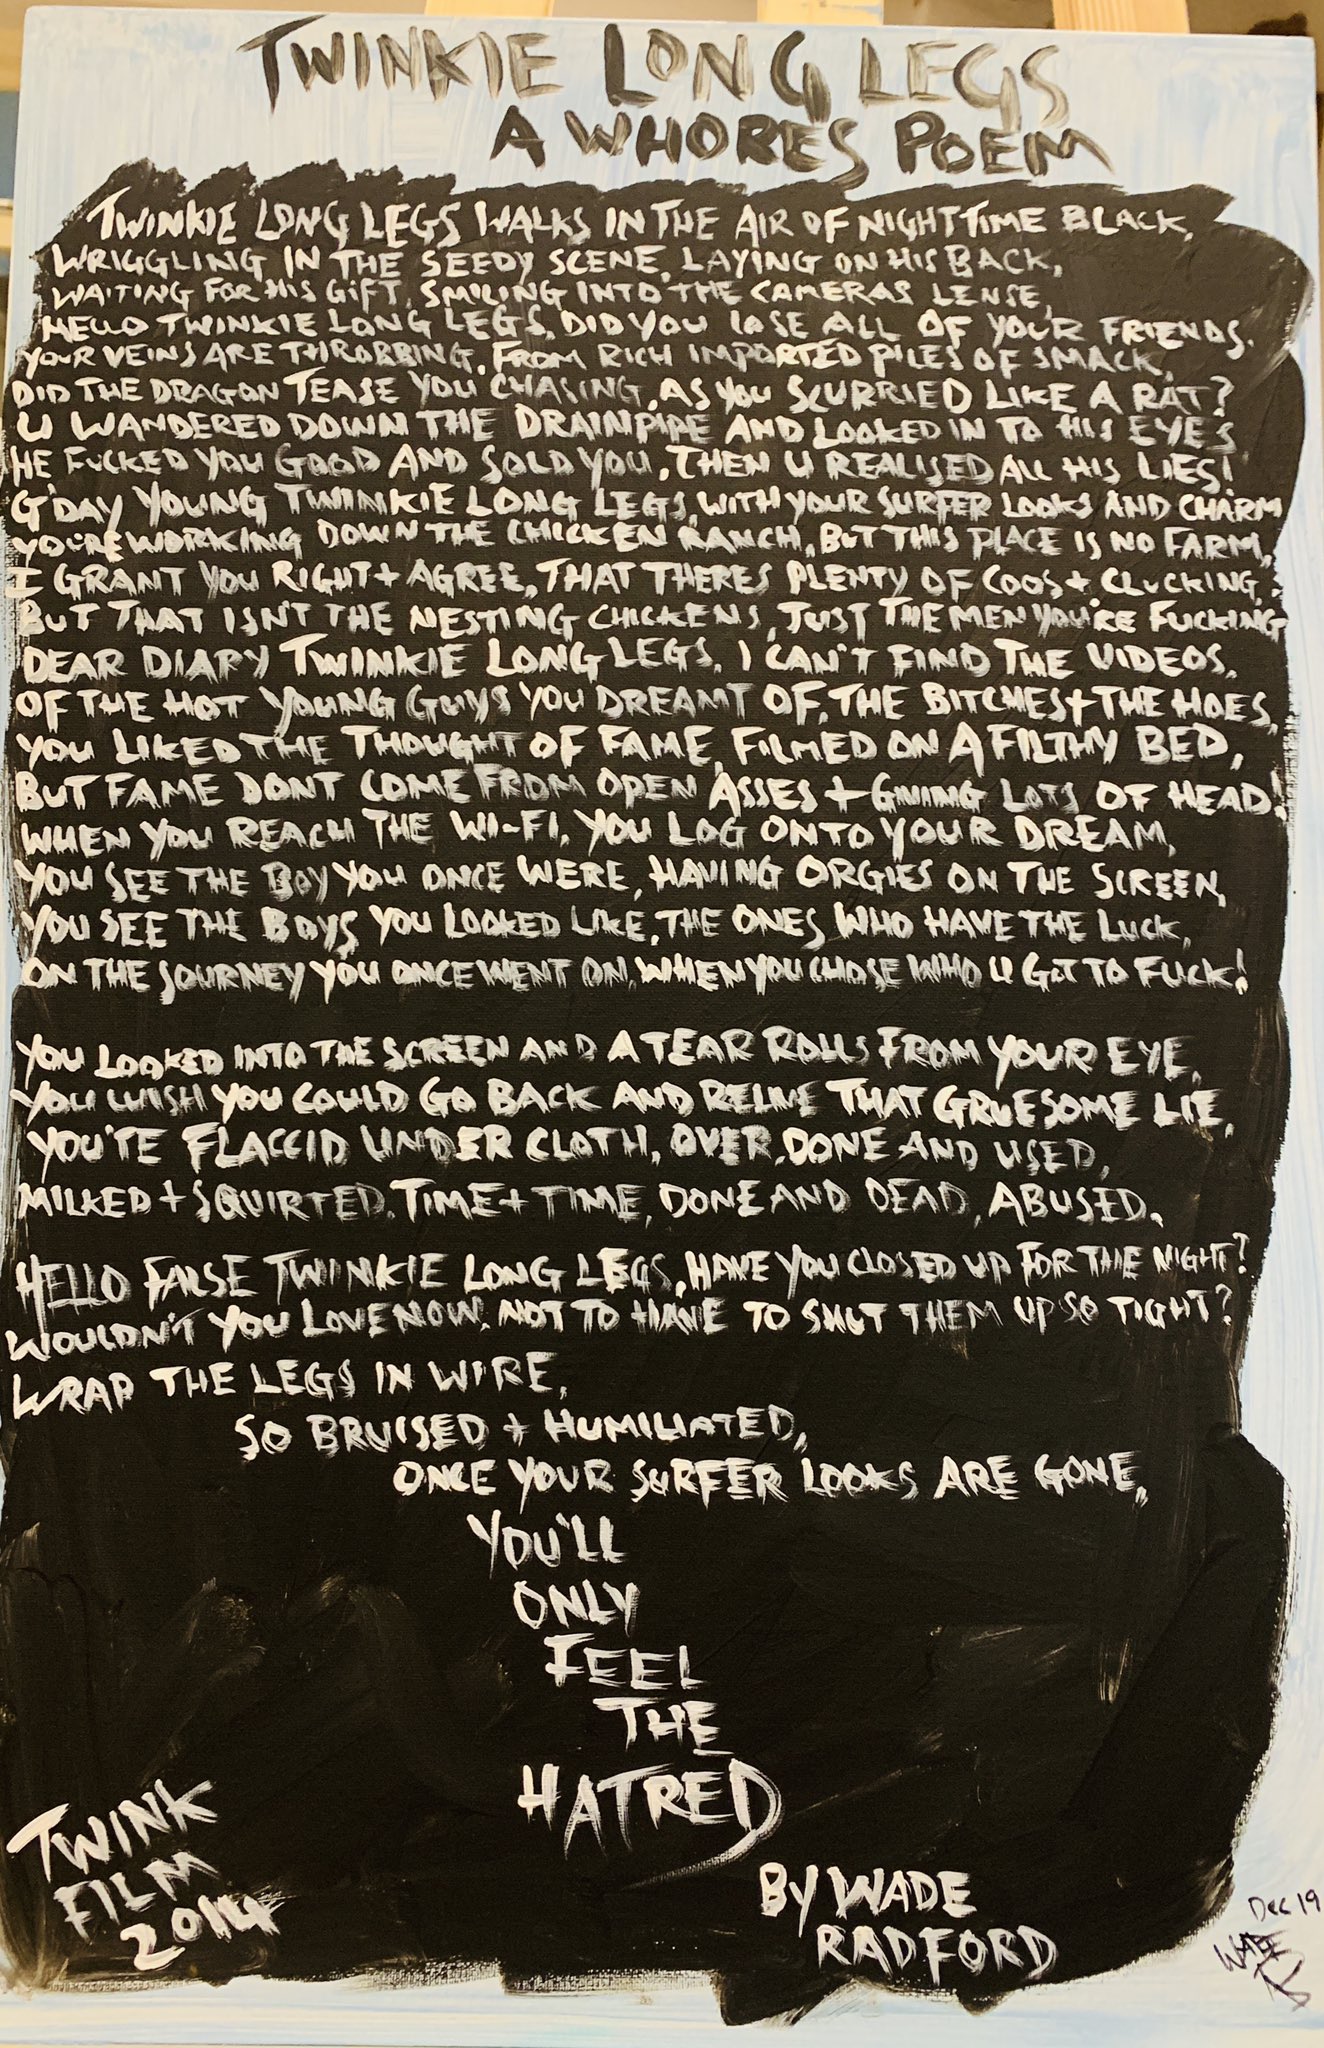 TWINKIE LONG LEGS
A WHORES POEM
TWINKIE LONG LEGS WALKS IN THE AIR OF NIGHT TIME BLACK,
WRIGGLING IN THE SEEDY SCENE, LAYING ON HIS BACK,
WAITING FOR HIS GIFT, SMILING INTO THE CAMERAS LENSE,
HELLO TWINKIE LONG LEGS, DID YOU LOSE ALL OF YOUR FRIENDS.
YOUR VEINS ARE THROBBING, FROM RICH IMPORTED PILES OF SMACK,
DID THE DRAGON TEASE YOU CHASING, AS YOU SCURRIED LIKE A RAT?
U WANDERED DOWN THE DRAINPIPE AND LOOKED IN TO HIS EYES
HE FUCKED YOU GOOD AND SOLD YOU, THEN U REALISED ALL HIS LIES!
G'DAY YOUNG TWINKIE LONG LEGS, WITH YOUR SURFER LOOKS AND CHARM
YOU'RE WORKING DOWN THE CHICKEN RANCH, BUT THIS PLACE IS NO FARM,
I GRANT YOU RIGHT + AGREE, THAT THERES PLENTY OF COOS + CLUCKING,
BUT THAT ISN'T THE NESTING CHICKENS, JUST THE MEN YOU'RE FUCKING
DEAR DIARY TWINKIE LONG LEGS, I CAN'T FIND THE VIDEOS,
OF THE HOT YOUNG GUYS YOU DREAMT OF, THE BITCHES + THE HOES,
YOU LIKED THE THOUGHT OF FAME, FILMED ON A FILTHY BED,
BUT FAME DONT COME FROM OPEN ASSES + GIVING LOTS OF HEAD!
WHEN YOU REACH THE WI-FI, YOU LOG ONTO YOUR DREAM,
YOU SEE THE BOY YOU ONCE WERE, HAVING ORGIES ON THE SCREEN,
YOU SEE THE BOYS YOU LOOKED LIKE, THE ONES WHO HAVE THE LUCK,
ON THE JOURNEY YOU ONCE WENT ON, WHEN YOU CHOSE WHO U GOT TO FUCK!
YOU LOOKED INTO THE SCREEN AND A TEAR ROLLS FROM YOUR EYE,
YOU WISH YOU COULD GO BACK AND RELIVE THAT GRUESOME LIE,
YOU'RE FLACCID UNDER CLOTH, OVER DONE AND USED,
MILKED + SQUIRTED, TIME + TIME, DONE AND DEAD, ABUSED,
HELLO FALSE TWINKIE LONG LEGS, HAVE YOU CLOSED UP FOR THE NIGHT?
WOULDN'T YOU LOVE NOW, NOT TO HAVE TO SHUT THEM UP SO TIGHT?
WRAP THE LEGS IN WIRE,
SO BRUISED + HUMILIATED,
ONCE YOUR SURFER LOOKS ARE GONE,
YOU'LL
ONLY
FEEL
THE
HATRED
TWINK
FILM
2014
BY WADE
RADFORD
Dec 19